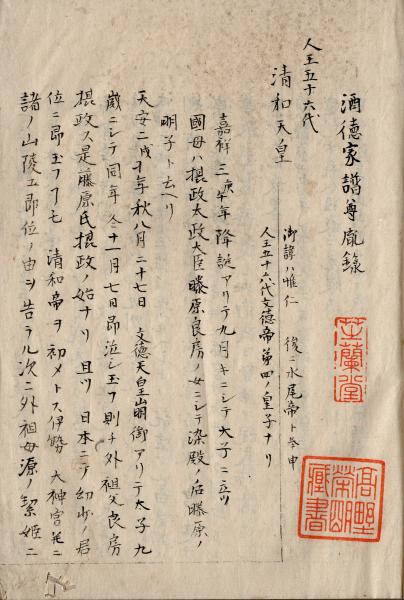 酒徳家譜尊庿録
人王五十六代
清和天皇
御諱ハ惟仁 後ニ水尾帝ト号申
人王五十五代文徳帝第四ノ皇子ナリ
嘉祥三庚午年降誕アリテ九月キニシテ太子ニ立ツ
國母ハ摂政太政大臣藤原良房ノ女ニシテ染殿ノ后藤原ノ
明子ト云ヘリ
天安二戊寅年秋八月二十七日 文徳天皇崩御アリテ太子九
歳ニシテ同年冬十一月七日即位シ玉フ則チ外祖父良房
摂政ス是藤原氏摂政ノ始ナリ 且ツ日本ニテ幼少ノ君
位ニ即玉フヿモ 清和帝ヲ初メトス伊勢 大神宮先ニ
諸ノ山陵エ即位ノ由ヲ告ラル次ニ外祖母源ノ絜姫ニ
芝蘭堂
髙野榮明藏書